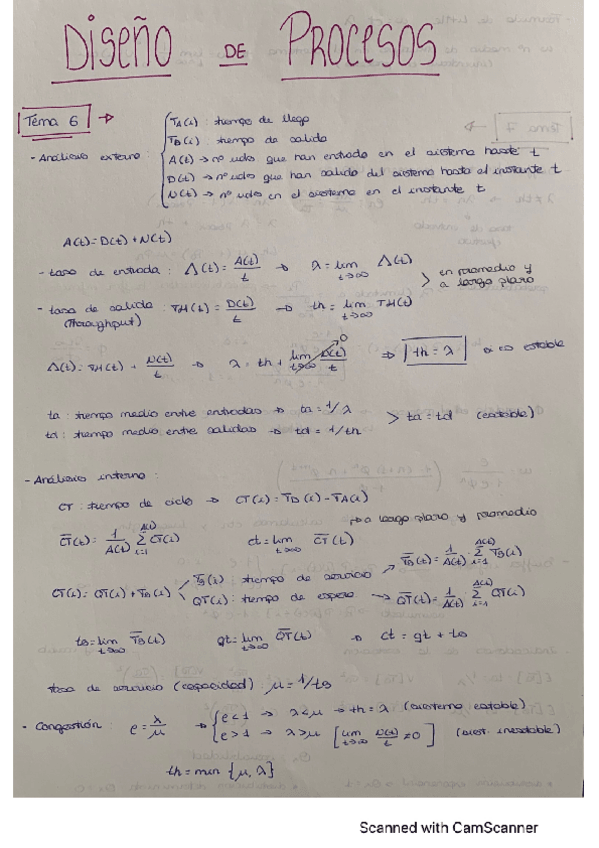 DISEÑO DE PROCESOS
Tema 6 →
TA(i) : tiempo de llega
TD(i) : tiempo de salida
- Análisis externo : A(t) → nº uds que han entrado en el sistema hasta t
D(t) → nº uds que han salido del sistema hasta el instante t.
N(t) → nº uds en el sistema en el instante t
A(t) = D(t) + N(t)
- tasa de entrada : Λ(t) = A(t)/t → λ = lim t→∞ Λ(t)
> en promedio y a largo plazo
- tasa de salida : TH(t) = D(t)/t → th = lim t→∞ TH(t)
(Throughput)
Λ(t) = TH(t) + N(t)/t → λ = th + lim t→∞ N(t)/t 0 ⇒ th = λ si es estable
ta : tiempo medio entre entradas → ta = 1/λ
> ta = td (estable)
td : tiempo medio entre salidas → td = 1/th
- Análisis interno :
CT : tiempo de ciclo → CT(i) = TD(i) - TA(i)
→ a largo plazo y promedio
C̅T̅(t) = 1/A(t) Σ i=1 A(t) CT(i) ct = lim t→∞ C̅T̅(t)
TS(i) : tiempo de servicio → T̅S̅(t) = 1/A(t) · Σ i=1 A(t) TS(i)
CT(i) = QT(i) + TS(i)
QT(i) : tiempo de espera → Q̅T̅(t) = 1/A(t) · Σ i=1 A(t) QT(i)
ts = lim t→∞ T̅S̅(t) qt = lim t→∞ Q̅T̅(t) → ct = qt + ts
tasa de servicio (capacidad) μ = 1/ts
- Congestión : e = λ/μ → e < 1 → λ < μ → th = λ (sistema estable)
e > 1 → λ > μ [lim t→∞ N(t)/t ≠ 0] (sist. inestable)
th = min {μ, λ}
Scanned with CamScanner